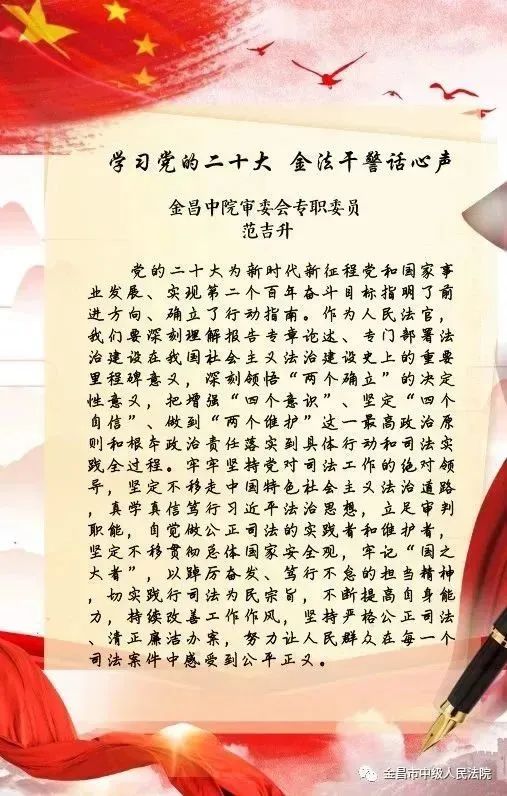 学习党的二十大 金法干警话心声
金昌中院审委会专职委员
范吉升
党的二十大为新时代新征程党和国家事
业发展、实现第二个百年奋斗目标指明了前
进方向、确立了行动指南。作为人民法官，
我们要深刻理解报告专章论述、专门部署法
治建设在我国社会主义法治建设史上的重要
里程碑意义，深刻领悟“两个确立”的决定
性意义，把增强“四个意识”、坚定“四个
自信”、做到“两个维护”这一最高政治原
则和根本政治责任落实到具体行动和司法实
践全过程。牢牢坚持党对司法工作的绝对领
导，坚定不移走中国特色社会主义法治道路
，真学真信笃行习近平法治思想，立足审判
职能，自觉做公正司法的实践者和维护者，
坚定不移贯彻总体国家安全观，牢记“国之
大者”，以踔厉奋发、笃行不怠的担当精神
，切实践行司法为民宗旨，不断提高自身能
力，持续改善工作作风，坚持严格公正司法
、清正廉洁办案，努力让人民群众在每一个
司法案件中感受到公平正义。
金昌市中级人民法院